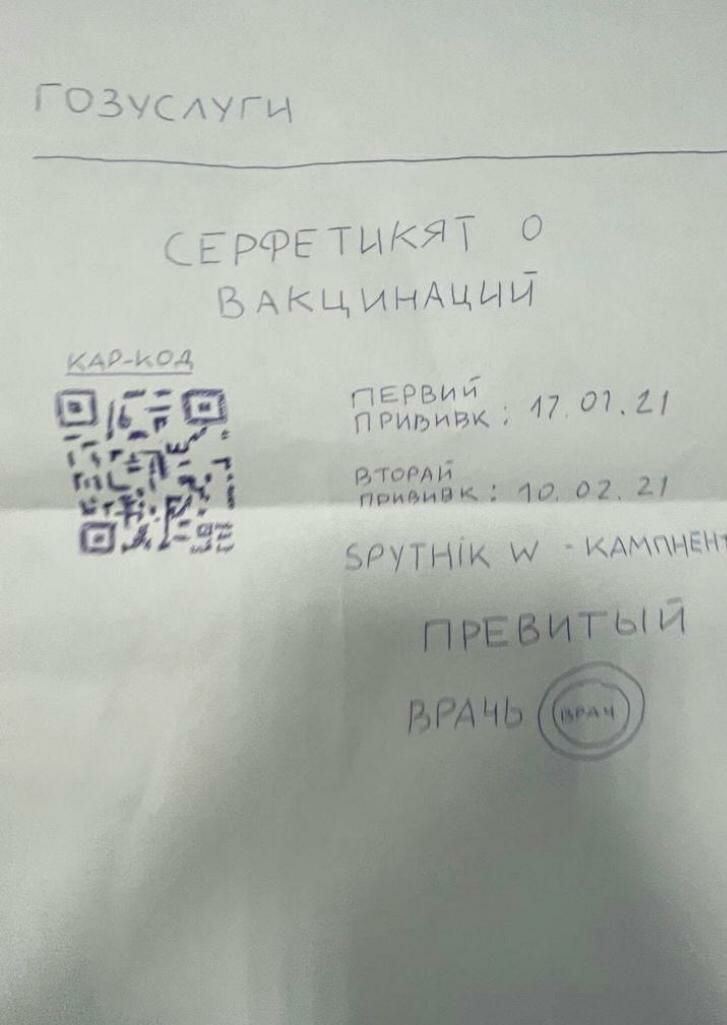 ГОЗУСЛУГИ
СЕРФЕТИКЯТ О
ВАКЦИНАЦИЙ
КАР-КОД
ПЕРВИЙ
ПРИВИВК : 17.01.21
ВТОРАЙ
ПРИВИВК : 10.02.21
SPYTHiK W - КАМПНЕНТ
ПРЕВИТЫЙ
ВРАЧЬ ВРАЧ